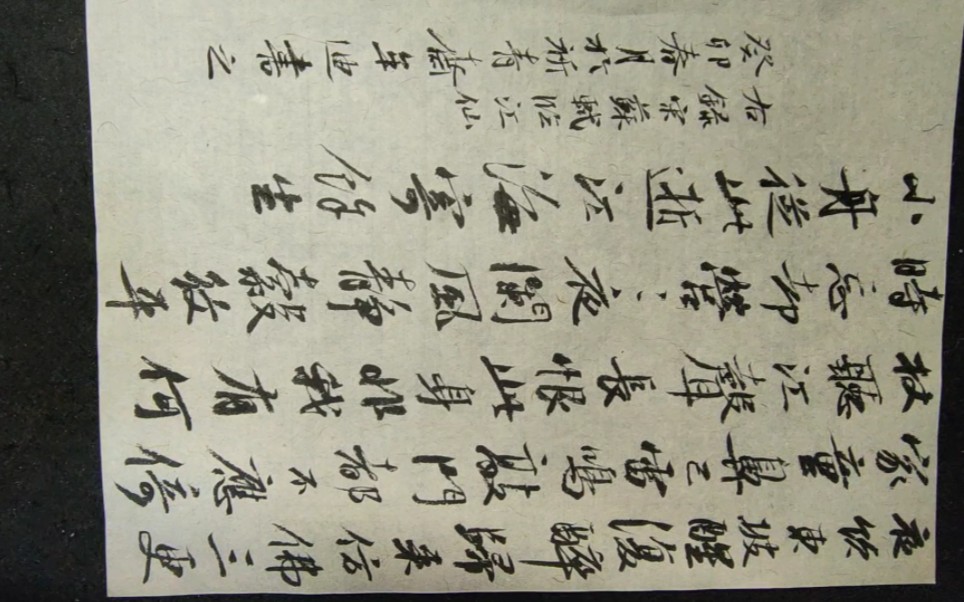 夜飲東坡醒復醉歸来仿佛三更
家童鼻已雷鳴敲門都不應倚
杖聽江聲長恨此身非我有何
時忘却營〻夜闌風静縠紋平
小舟從此逝江海寄餘生
右録宋蘇軾临江仙
癸卯春月於青齋年迪書之